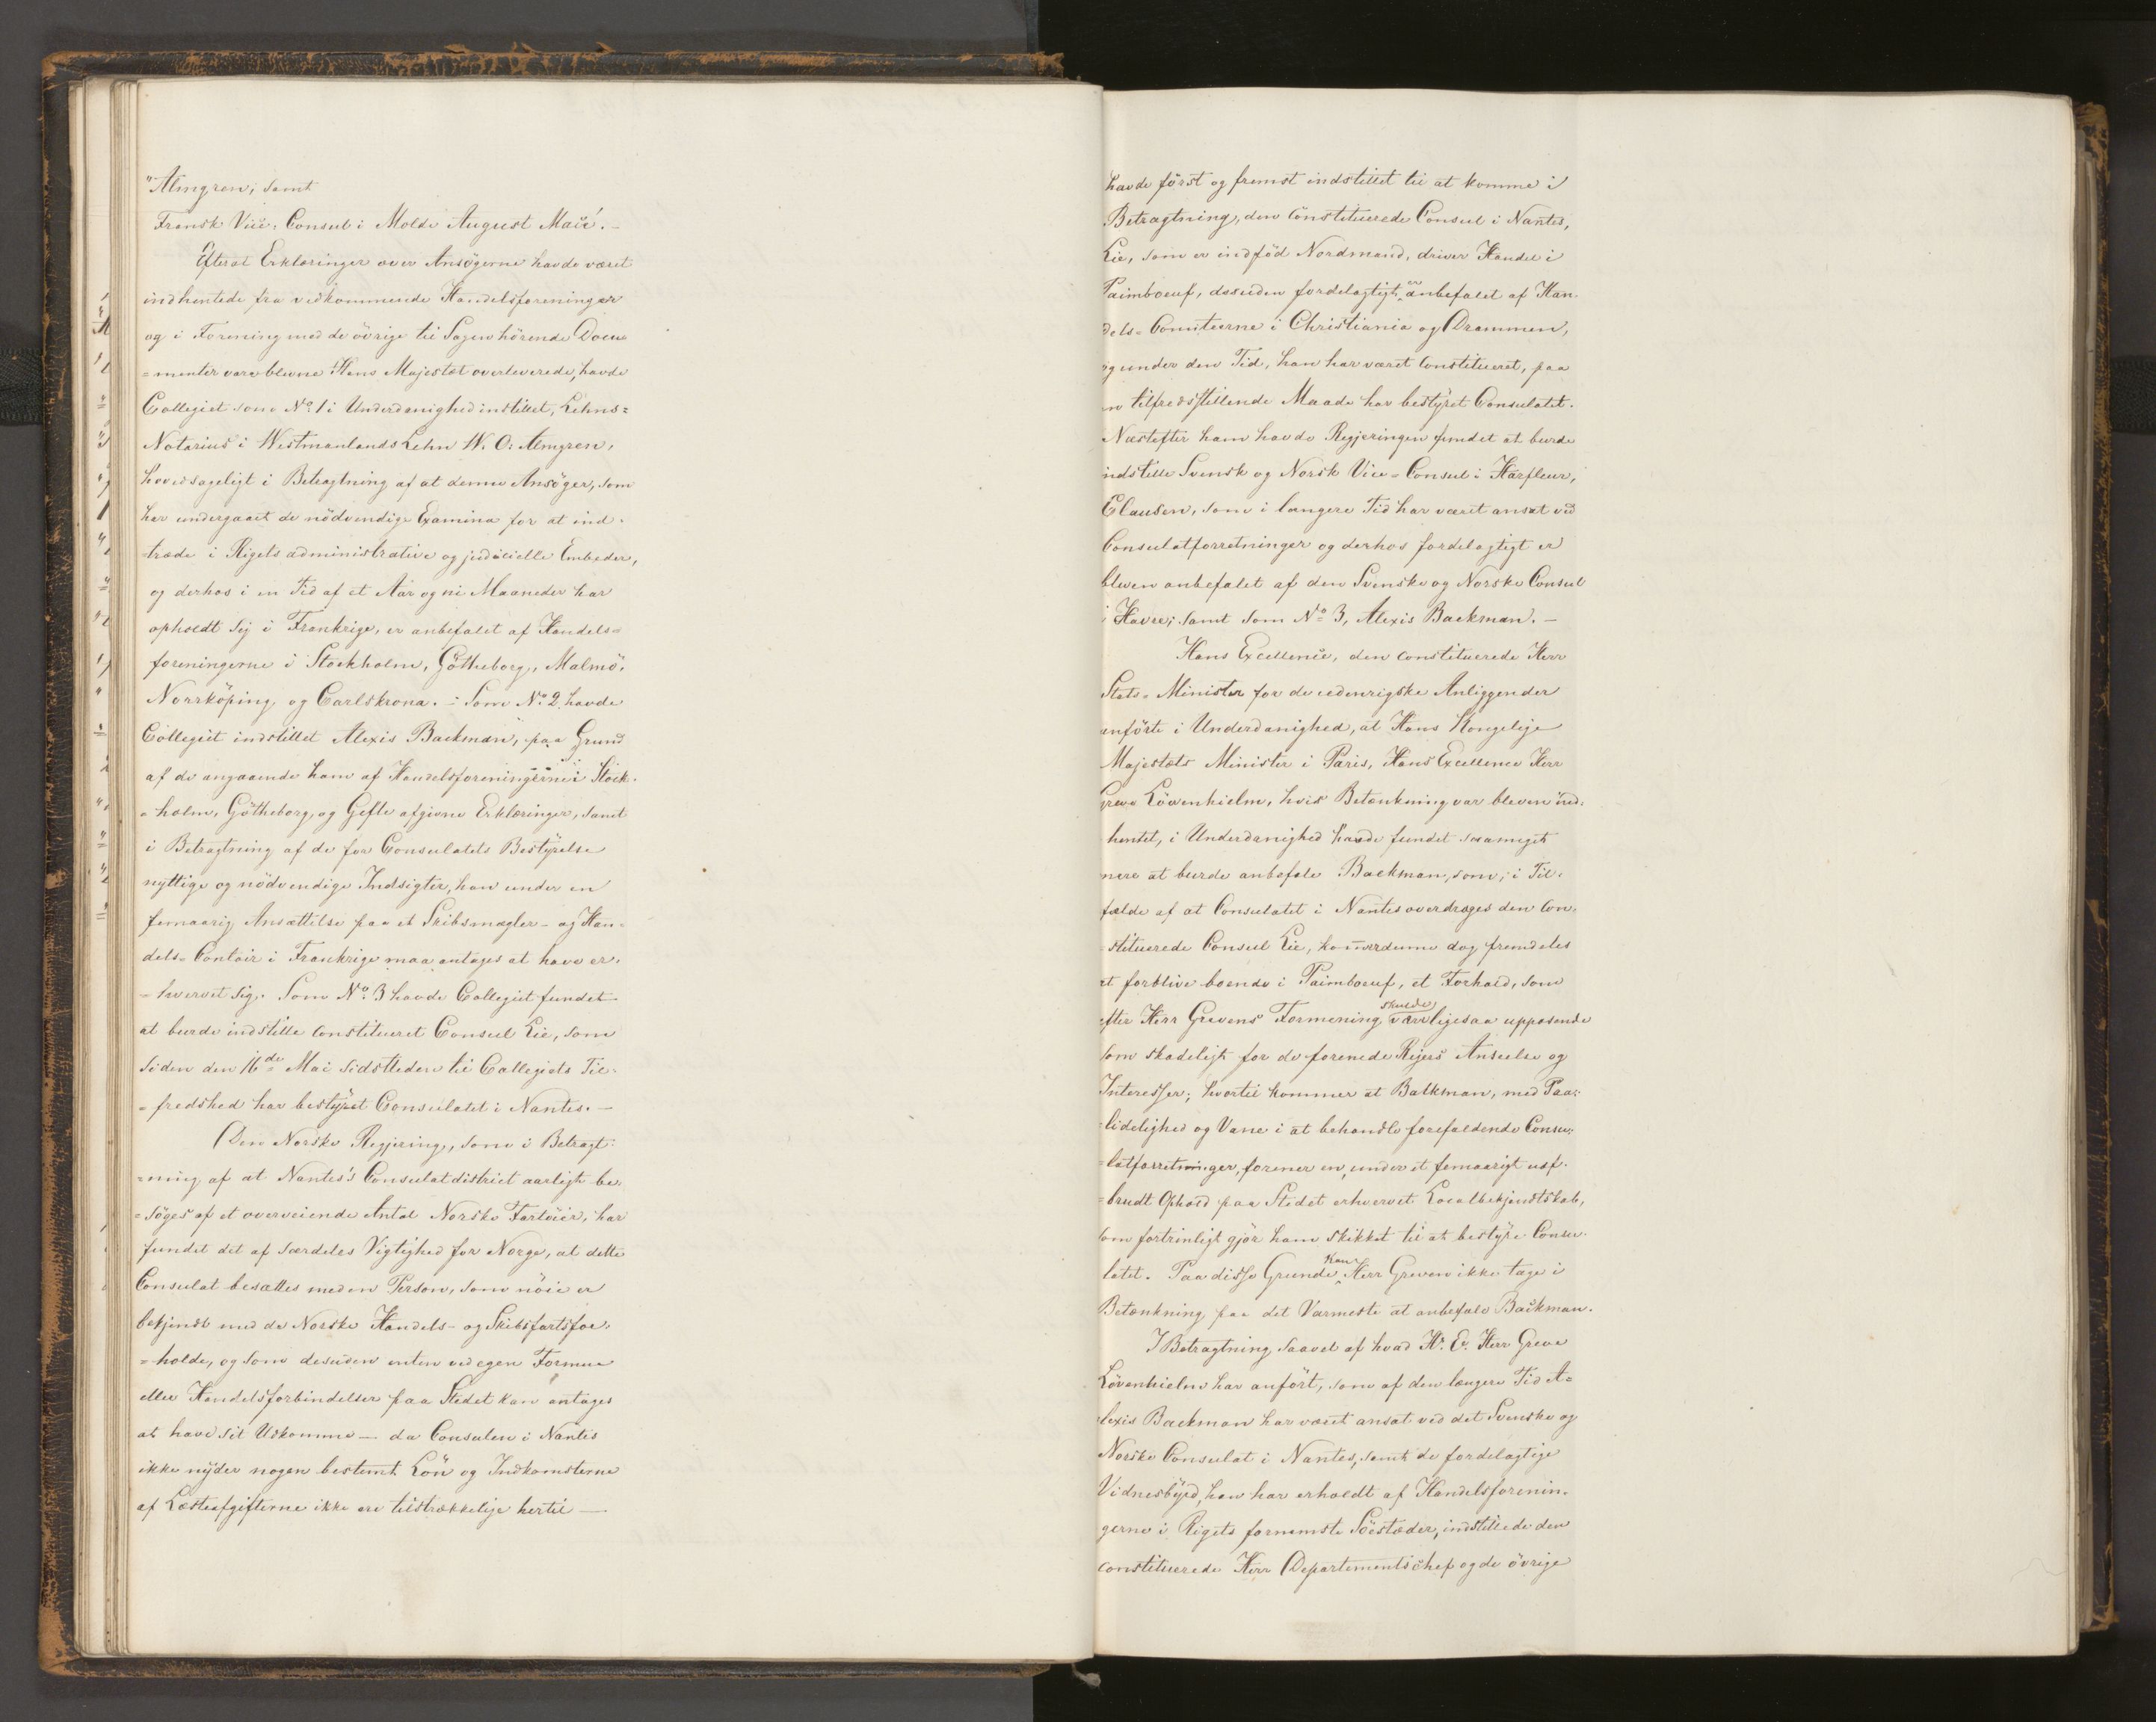 "Almgren; samt
Fransk Vice-Consul i Molde August Macé.–
Efterat Erklæringer over Ansögerne havde været
indhentede fra vedkommende Handelsforeninger
og i Forening med de övrige til Sagen hörende Docu-
=menter vare blevne Hans Majestæt overleverede, havde
Collegiet som No 1 i Underdanighed indstillet, Lehns=
Notarius i Westmanlands Lehn W. O. Almgren,
hovedsageligt i Betragtning af at denne Ansöger, som
har undergaaet de nödvendige Examina for at ind-
træde i Rigets administrative og judicielle Embeder,
og derhos i en Tid af et Aar og ni Maaneder har
opholdt sig i Frankrige, er anbefalet af Handels=
foreningerne i Stockholm, Götheborg, Malmö,
Norrköping og Carlskrona. – Som No 2 havde
Collegiet indstillet Alexis Backman, paa Grund
af de angaaende ham af Handelsforeningerne i Stock-
=holm, Götheborg og Gefle afgivne Erklæringer, samt
i Betragtning af de for Consulatets Bestyrelse
nyttige og nödvendige Indsigter, han under en
femaarig Ansættelse paa et Skibsmægler- og Han=
dels=Contoir i Frankrige maa antages at have er-
=hvervet sig. Som No 3 havde Collegiet fundet
at burde indstille constitueret Consul Lie, som
siden den 16de Mai sidstleden til Collegiets Til-
=fredshed har bestyret Consulatet i Nantes.–
Den Norske Regjering, som i Betragt-
=ning af at Nantes's Consulatdistrict aarligt be-
=söges af et overveiende Antal Norske Fartöier, har
fundet det af særdeles Vigtighed for Norge, at dette
Consulat besættes med en Person, som nöie er
bekjendt med de Norske Handels- og Skibsfartsfor-
=holde, og som desuden enten ved egen Formue
eller Handelsforbindelser paa Stedet kan antages
at have sit Udkomme – da Consulen i Nantes
ikke nyder nogen bestemt Lön og Indkomsterne
af Læsteafgifterne ikke ere tilstrækkelige hertil –
havde först og fremst indstillet til at komme i
Betragtning, den constituerede Consul i Nantes,
Lie, som er indföd Nordmand, driver Handel i
Paimboeuf, desuden fordelagtigt er anbefalet af Han-
dels=Comiteerne i Christiania og Drammen,
og under den Tid, han har været constitueret, paa
en tilfredsstillende Maade har bestyret Consulatet.
Næstefter ham havde Regjeringen fundet at burde
indstille Svensk og Norsk Vice=Consul i Harfleur,
Clausen, som i længere Tid har været ansat ved
Consulatforretninger og derhos fordelagtigt er
bleven anbefalet af den Svenske og Norske Consul
i Havre; samt som No 3, Alexis Backman.–
Hans Excellence, den constituerede Herr
Stats=Minister for de udenrigske Anliggender
anförte i Underdanighed, at Hans Kongelige
Majestæts Minister i Paris, Hans Excellence Herr
Greve Löwenhielm, hvis Betænkning var bleven ind-
hentet, i Underdanighed havde fundet saameget
mere at burde anbefale Backman, som, i Til-
fælde af at Consulatet i Nantes overdrages den con-
=stituerede Consul Lie, denne dog fremdeles
at forblive boende i Paimboeuf, et Forhold, som
efter Herr Grevens Formening skulde være ligesaa uppasende
som skadeligt for de forenede Rigers Anseelse og
Interesser; hvortil kommer at Backman, med Paa-
=lidelighed og Vane i at behandle forefaldende Consu-
=latforretninger, forener en, under et femaarigt uaf-
=brudt Ophold paa Stedet erhvervet Localbekjendtskab,
som fortrinligt gjör ham skikket til at bestyre Consu-
latet. Paa disse Grunde kan Herr Greven ikke tage i
Betænkning paa det Varmeste at anbefale Backman.
I Betragtning saavel af hvad H. E. Herr Greve
Lövenhielm har anfört, som af den længere Tid A=
lexis Backman har været ansat ved det Svenske og
Norske Consulat i Nantes, samt de fordelagtige
Vidnesbyrd, han har erholdt af Handelsforenin-
gerne i Rigets fornemste Söestæder, indstillede den
constituerede Herr Departementschef og de övrige